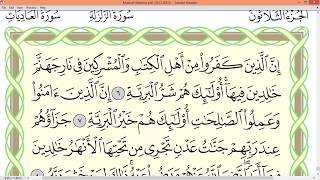 الجزء الثلاثون سورة الزلزلة سورة العاديات
إِنَّ ٱلَّذِينَ كَفَرُوا۟ مِنْ أَهْلِ ٱلْكِتَٰبِ وَٱلْمُشْرِكِينَ فِى نَارِ جَهَنَّمَ
خَٰلِدِينَ فِيهَآ ۚ أُو۟لَٰٓئِكَ هُمْ شَرُّ ٱلْبَرِيَّةِ ٦ إِنَّ ٱلَّذِينَ ءَامَنُوا۟
وَعَمِلُوا۟ ٱلصَّٰلِحَٰتِ أُو۟لَٰٓئِكَ هُمْ خَيْرُ ٱلْبَرِيَّةِ ٧ جَزَآؤُهُمْ
عِندَ رَبِّهِمْ جَنَّٰتُ عَدْنٍ تَجْرِى مِن تَحْتِهَا ٱلْأَنْهَٰرُ خَٰلِدِينَ